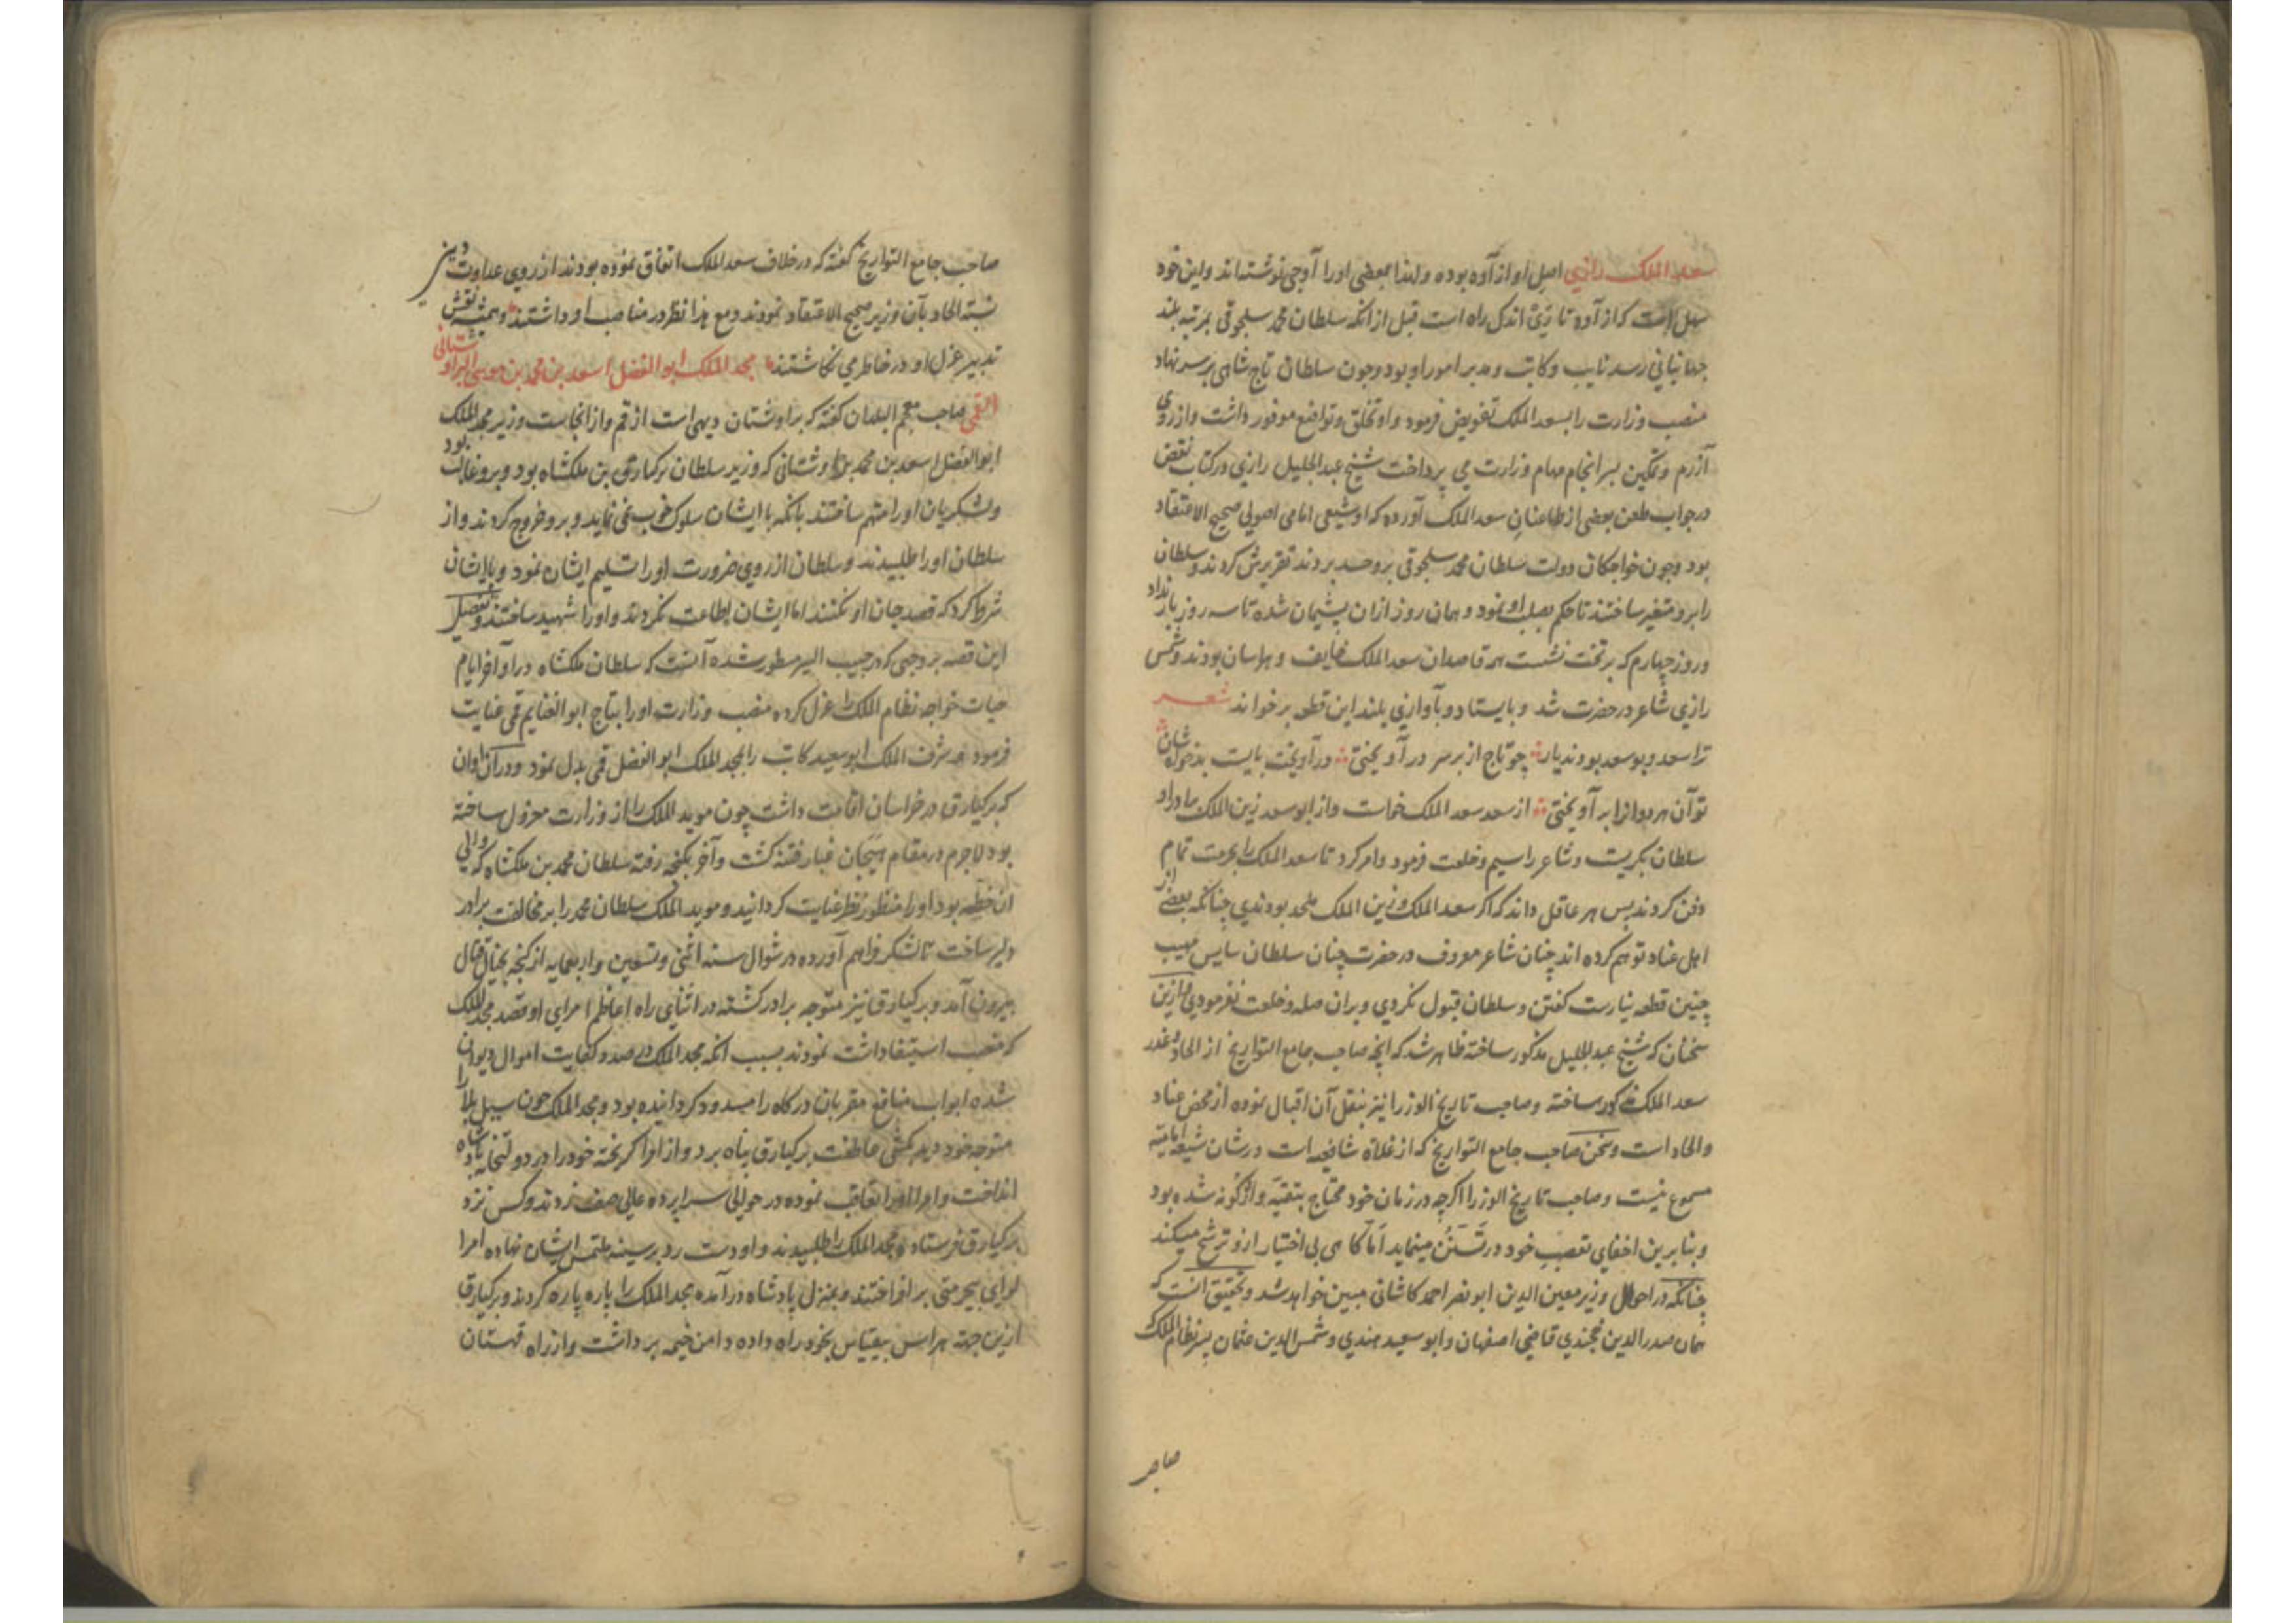 سعد الملک رازي اصل او از آوه بوده و لهذا بعضی اورا آوجی نوشته‌اند و این خود
سهل است که از آوه تا ری اندک راه است قبل از انکه سلطان محمد سلجوقی بمرتبه بلند
جهانبانی رسد نایب و کاتب و مدبر امور او بود و چون سلطان تاج شاهی بر سر نهاد
منصب وزارت را بسعد الملک تفویض فرمود و او تخلق و تواضع موفور داشت و از روی
آزرم و تمکین بسرانجام مهام وزارت می پرداخت شیخ عبد الجلیل رازي در کتاب نقض
در جواب طعن بعضی از طاعنان سعد الملک آورده که او شیعی امامی اصولی صحیح الاعتقاد
بود و چون خواجکان دولت سلطان محمد سلجوقی برو حسد بردند تقریرش کردند و سلطان
را برو متغیر ساختند تا حکم بصلب او نمود و همان روز ازان پشیمان شده تا سه روز بار نداد
و روز چهارم که بر تخت نشست همه قاصدان سعد الملک خایف و هراسان بودند و شمس
رازي شاعر در حضرت شد و بایستاد و بآوازي بلند این قطعه برخواند شعر
ترا سعد و بوسعد بودند یار چو تاج از بر سر در آویختی در آویخت بایست بدخواه شان
تو آن هر دوانرا بر آویختی از سعد سعد الملک خواست و از ابوسعد زین الملک را و او
سلطان بکریست و شاعر را سیم و خلعت فرمود و امر کرد تا سعد الملک را بحرمت تمام
دفن کردند پس هر عاقل داند که اکر سعد الملک و زین الملک ملحد بودندي چنانکه بعضی از
اهل عناد توهم کرده اند چنان شاعر معروف در حضرت چنان سلطان سایس مهیب
چنین قطعه نیارست کفتن و سلطان قبول نکردي و بران صله و خلعت نفرمودي و ازین
سخنان که شیخ عبد الجلیل مذکور ساخته ظاهر شد که انچه صاحب جامع التواریخ از الحاد و غدر
سعد الملک مذکور ساخته و صاحب تاریخ الوزرا نیز بنقل آن اقبال نموده از محض عناد
و الحاد است و سخن صاحب جامع التواریخ که از غلاة شافعیه است در شان شیعه امامیه
مسموع نیست و صاحب تاریخ الوزرا اکرچه در زمان خود محتاج بتقیه و واژکونه شده بود
و بنا برین اخفای تعصب خود در تسنن مینماید اما کاهی بی اختیار ازو ترشح میکند
چنانکه در احوال وزیر معین الدین ابو نصر احمد کاشانی مبین خواهد شد و تحقیق آنست که
همان صدر الدین خجندي قاضی اصفهان و ابو سعید هندي و شمس الدین عثمان پسر نظام الملک
صاحب
صاحب جامع التواریخ کفته که در خلاف سعد الملک اتفاق نموده بودند از روی عداوت دینی
نسبة الحاد بآن وزیر صحیح الاعتقاد نمودند و مع هذا نظر در مناصب او داشتند و همیشه نقش
تدبیر عزل او در خاطر می نکاشتند مجد الملک ابو الفضل اسعد بن محمد بن موسی البراوستانی
القمی صاحب معجم البلدان کفته که براوستان دیهی است از قم و از انجا ست وزیر مجد الملک
ابو الفضل اسعد بن محمد براوستانی که وزیر سلطان برکیارق بن ملکشاه بود و برو غالب بود
و لشکریان اورا متهم ساختند بانکه با ایشان سلوک خوب نمی نماید و برو خروج کردند و از
سلطان اورا طلبیدند و سلطان از روی ضرورت اورا تسلیم ایشان نمود و با ایشان
شرط کرد که قصد جان او نکنند اما ایشان اطاعت نکردند و اورا شهید ساختند و تفصیل
این قصه بر وجهی که در حبیب السیر مسطور شده آنست که سلطان ملکشاه در اواخر ایام
حیات خواجه نظام الملک را عزل کرده منصب وزارت اورا بتاج ابو الغنایم قمی عنایت
فرمود و شرف الملک ابو سعید کاتب را بمجد الملک ابو الفضل قمی بدل نمود و در آن اوان
که برکیارق در خراسان اقامت داشت چون موید الملک را از وزارت معزول ساخته
بود لاجرم در مقام هیجان غبار فتنه کشت و آخر بکنجه رفته سلطان محمد بن ملکشاه که والی
آن خطه بود اورا منظور نظر عنایت کردانید و موید الملک سلطان محمد را بر مخالفت برادر
دلیر ساخت تا لشکر فراهم آورده در شوال سنه اثنی و تسعین و اربعمایه از کنجه بخیال قتال
بیرون آمد و برکیارق نیز متوجه برادر کشته در اثنای راه اعاظم امرای او قصد مجد الملک
که منصب استیفا داشت نمودند بسبب آنکه مجد الملک در صدد کفایت اموال دیوان
شده ابواب منافع مقربان درکاه را مسدود کردانیده بود و مجد الملک چون سیل بلا را
متوجه خود دید بکشتی عاطفت برکیارق پناه برد و از امرا کریخته خود را در دولتخانه پادشاه
انداخت و امرا اورا تعاقب نموده در حوالی سراپرده عالی صف زدند و کس نزد
برکیارق فرستاده مجد الملک را طلبیدند و او دست رد بر سینه ملتمس ایشان نهاده امرا
لوای بیحرمتی بر افراختند و بمنزل پادشاه در آمده مجد الملک را پاره پاره کردند و برکیارق
ازین جهة هراس بیقیاس بخود راه داده دامن خیمه برداشت و از راه قهستان